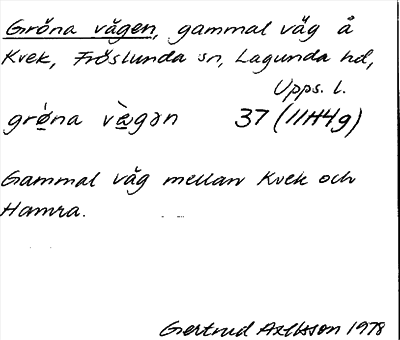 Gröna vägen, gammal väg å
Kvek, Fröslunda sn, Lagunda hd,
Upps. l.
grö̀na væ̀gən 37 (11H4g)
Gammal väg mellan Kvek och
Hamra.
Gertrud Axelsson 1978